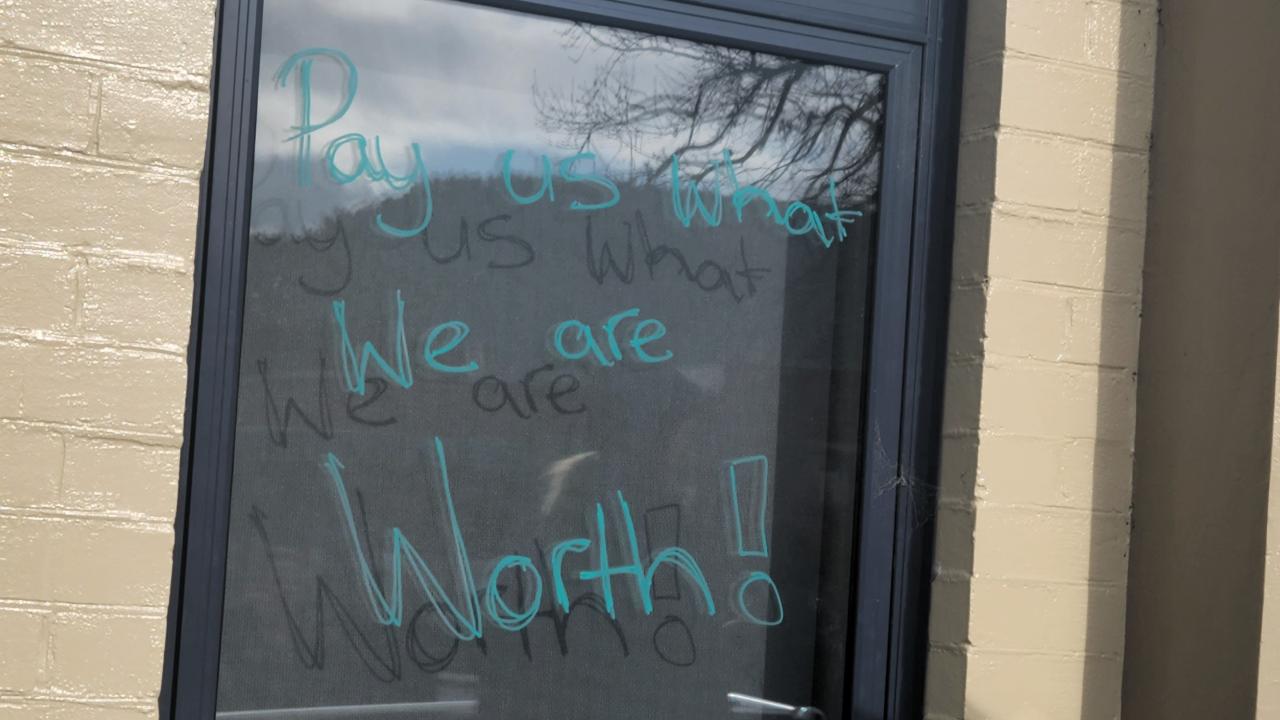 Pay us what
We are
Worth!